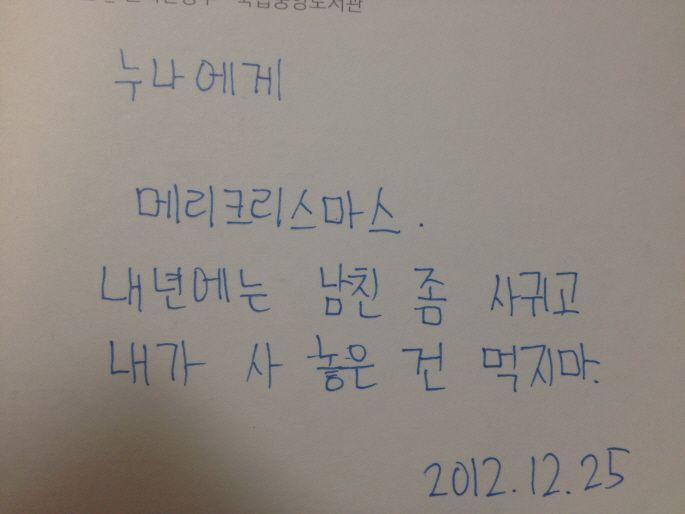 국립중앙도서관
누나에게
메리크리스마스.
내년에는 남친 좀 사귀고
내가 사 놓은 건 먹지마.
2012.12.25